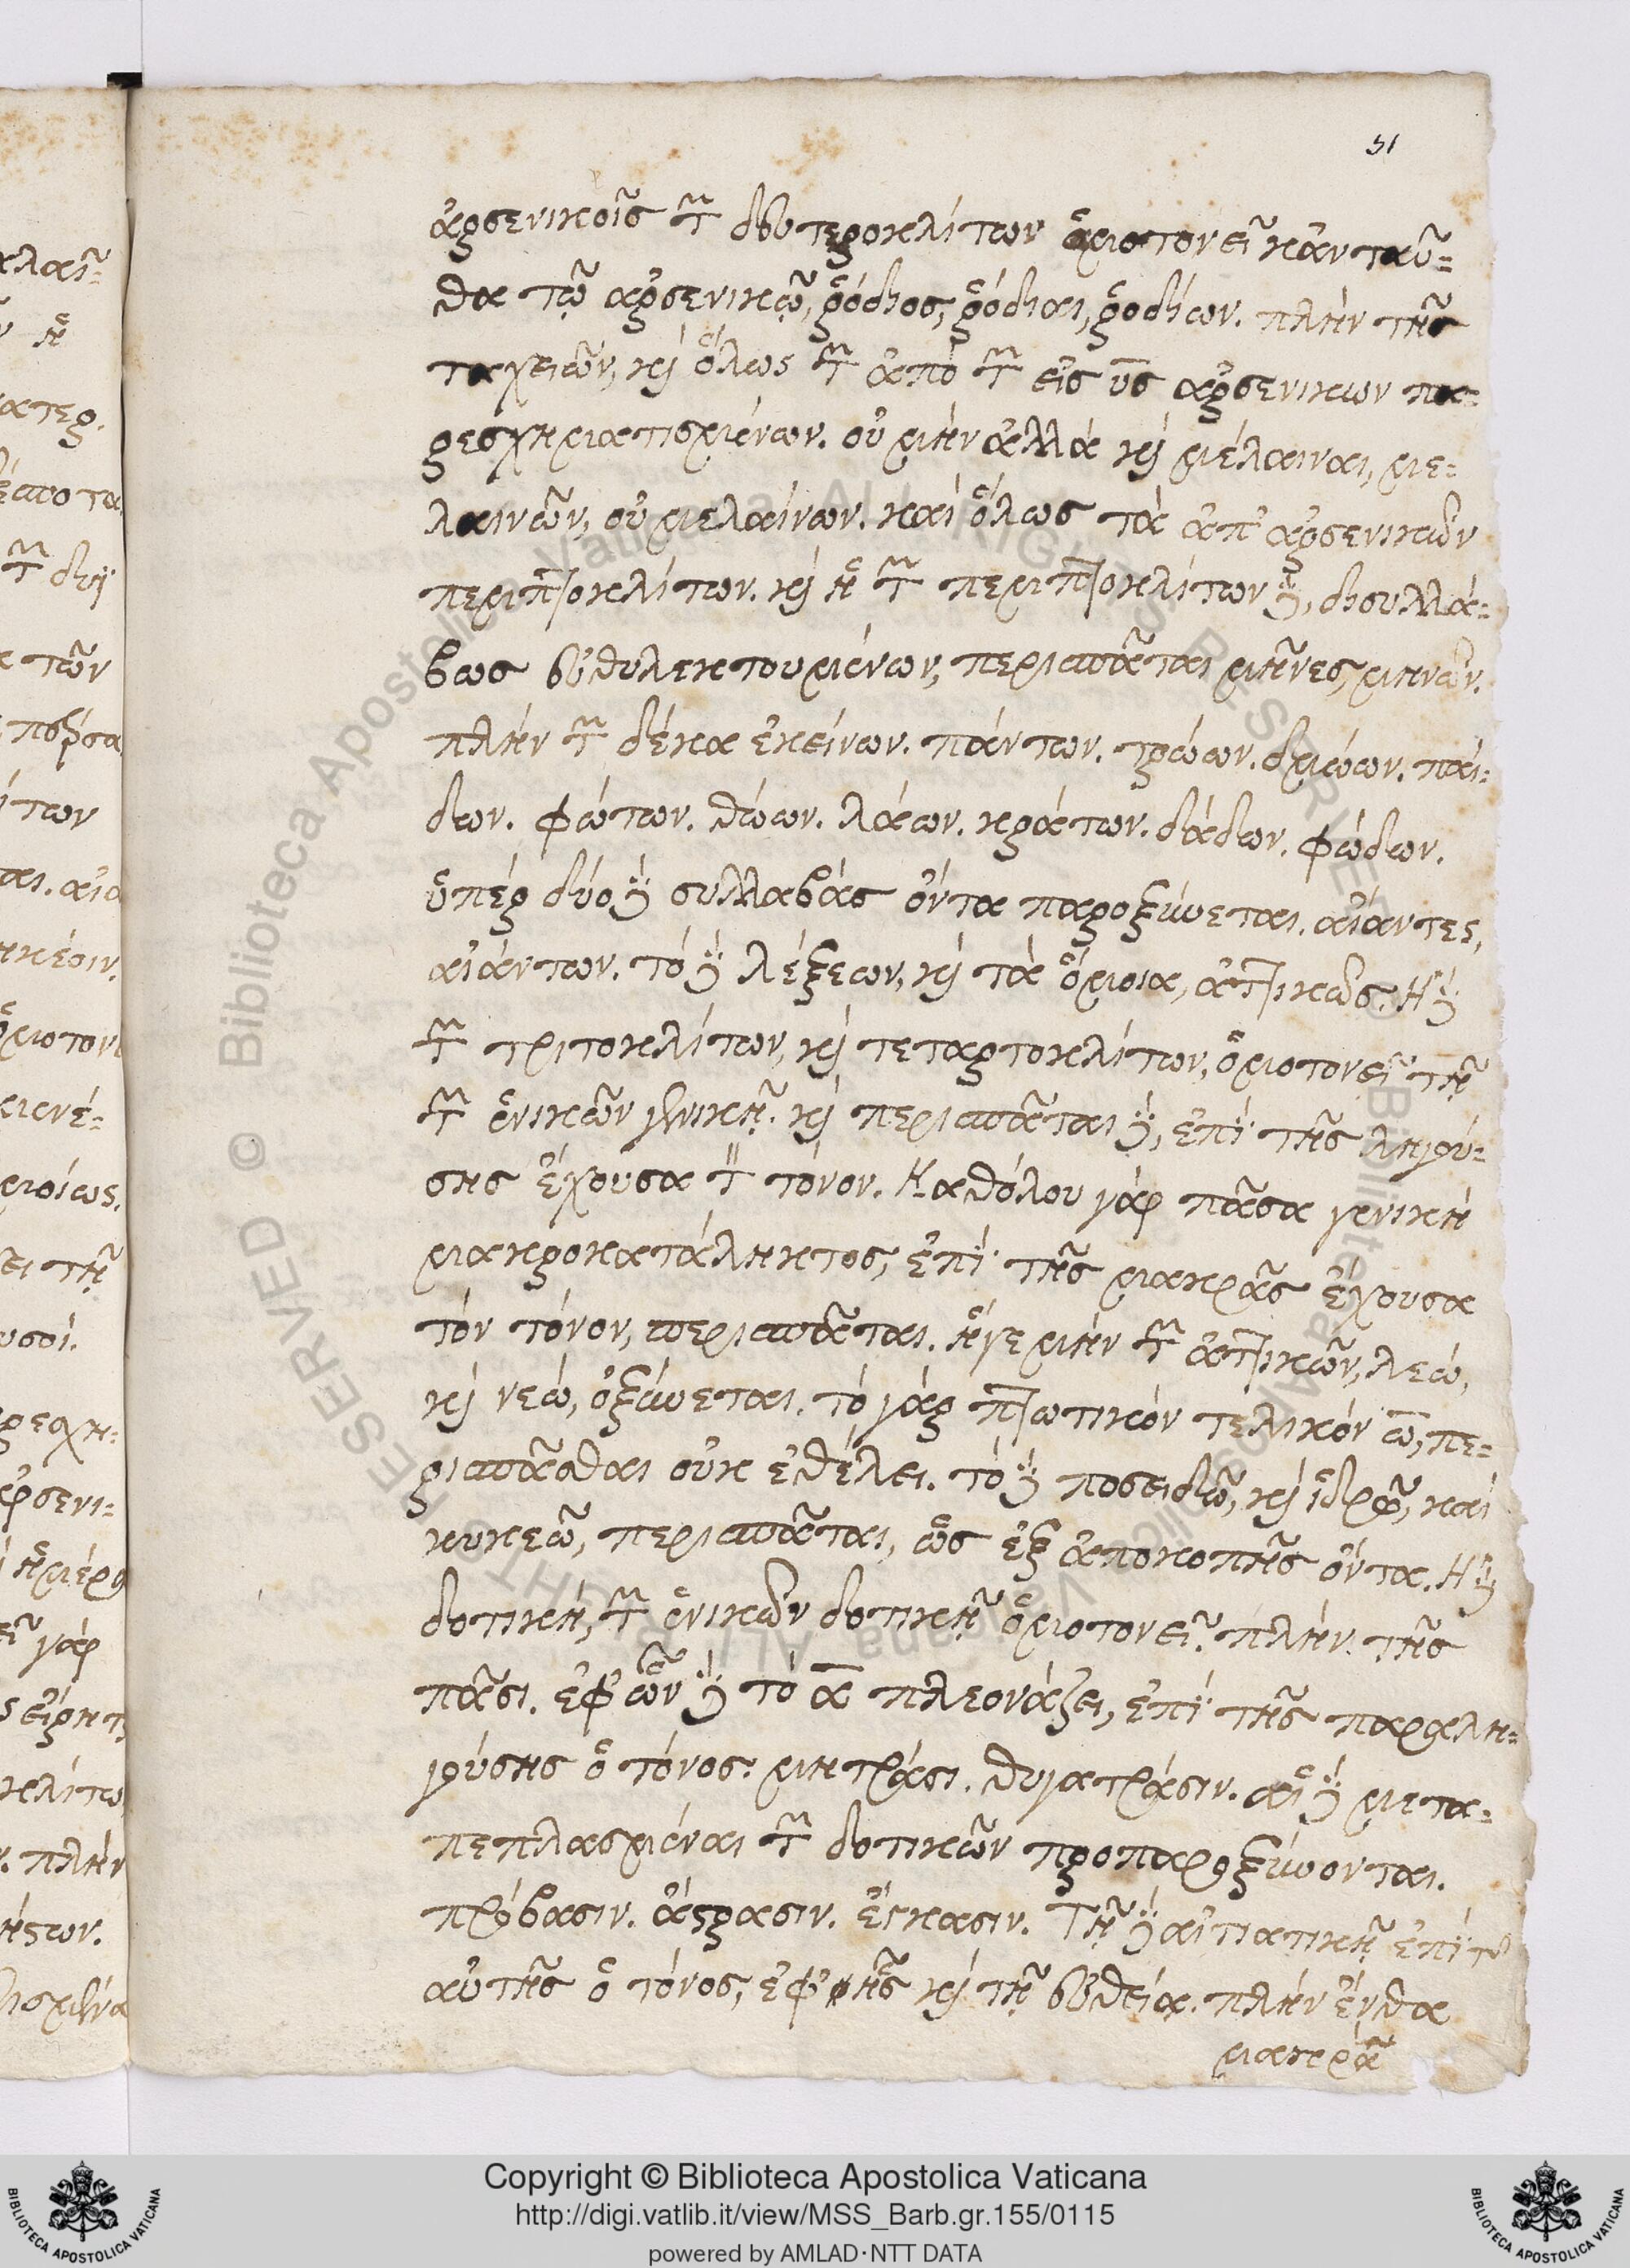 51
ἀρσενικοῖς τῶν δευτεροκλίτων ὁμοτονεῖ κἀνταῦ-
θα τῷ ἀρσενικῷ, ῥόδιος, ῥόδιαι, ῥοδίων. πλὴν τῆς
ταχειῶν, καὶ ὅλως τῶν ἀπὸ τῶν εἰς υς ἀρσενικῶν πα-
ρεσχηματισμένων. οὐ μὴν ἀλλὰ καὶ μέλαιναι, με-
λαινῶν, οὐ μελαίνων. καὶ ὅλως τὰ ἀπ' ἀρσενικῶν
περιττοκλίτων. καὶ ἡ τῶν περιττοκλίτων δὲ, δισυλλά-
βως εὐθυλεκτουμένων, περισπᾶται μῆνες, μηνῶν.
πλὴν τῶν δέκα ἐκείνων. πάντων. τρώων. δμώων. παί-
δων. φώτων. θώων. λάων. κράτων. δάδων. φώδων.
ὑπὲρ δύο δὲ συλλαβὰς ὄντα παροξύνεται. αἴαντες,
αἰάντων. τὸ δὲ λέξεων, καὶ τὰ ὅμοια, ἀττικῶς. Ἡ δὲ
τῶν τριτοκλίτων, καὶ τεταρτοκλίτων, ὁμοτονεῖ τῇ
τῶν ἑνικῶν γενικῇ. καὶ περισπᾶται δὲ, ἐπὶ τῆς ληγού-
σης ἔχουσα τὸν τόνον. Καθόλου γὰρ πᾶσα γενικὴ
μακροκατάληκτος, ἐπὶ τῆς μακρᾶς ἔχουσα
τὸν τόνον, περισπᾶται. ἥγε μὴν τῶν ἀττικῶν, λεώ,
καὶ νεώ, ὀξύνεται. τὸ γὰρ πτωτικὸν τελικὸν ω, πε-
ρισπᾶσθαι οὐκ ἐθέλει. τὸ δὲ ποσειδῶ, καὶ ἱδρῶ, καὶ
κυκεῶ, περισπᾶται, ὡς ἐξ ἀποκοπῆς ὄντα. Ἡ δὲ
δοτικὴ, τῶν ἑνικῶν δοτικῇ ὁμοτονεῖ. πλὴν τῆς
πᾶσι. ἐφ' ὧν δὲ τὸ α πλεονάζει, ἐπὶ τῆς παραλη-
γούσης ὁ τόνος. μητράσι. θυγατράσιν. αἱ δὲ μετα-
πεπλασμέναι τῶν δοτικῶν προπαροξύνονται.
πρόβασιν. ἄστρασιν. ἔγκασιν. Τῇ δὲ αἰτιατικῇ ἐπὶ τῆς
αὐτῆς ὁ τόνος, ἐφ' ἧς καὶ τῇ εὐθείᾳ. πλὴν ἔνθα
μακρᾷ
Copyright © Biblioteca Apostolica Vaticana
http://digi.vatlib.it/view/MSS_Barb.gr.155/0115
powered by AMLAD·NTT DATA